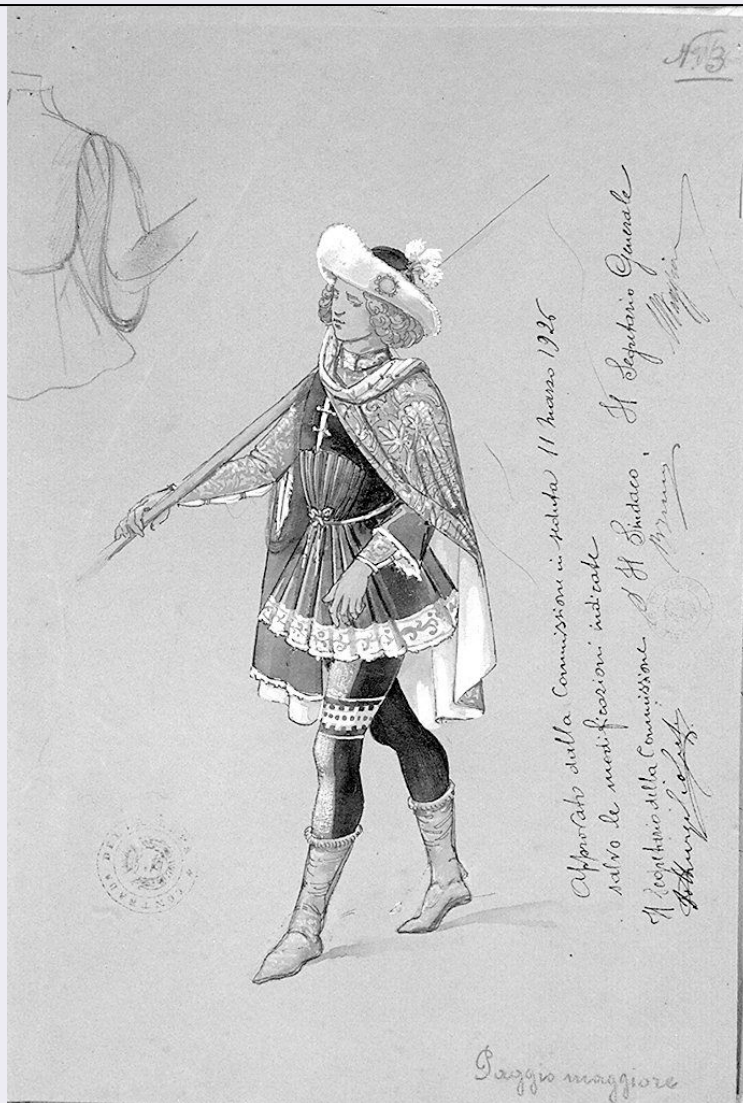 N. 3
Approvato dalla Commissione in seduta 11 marzo 1926
salvo le modificazioni indicate
Il Segretario della Commissione Il Sindaco. Il Segretario Generale
CONTRADA DEL
Paggio maggiore